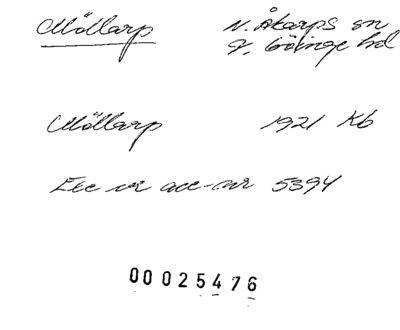 Möllarp N. Åkarps sn
V. Göinge hd
Möllarp 1921 Kb
Exc ur acc-nr 5394
00025476